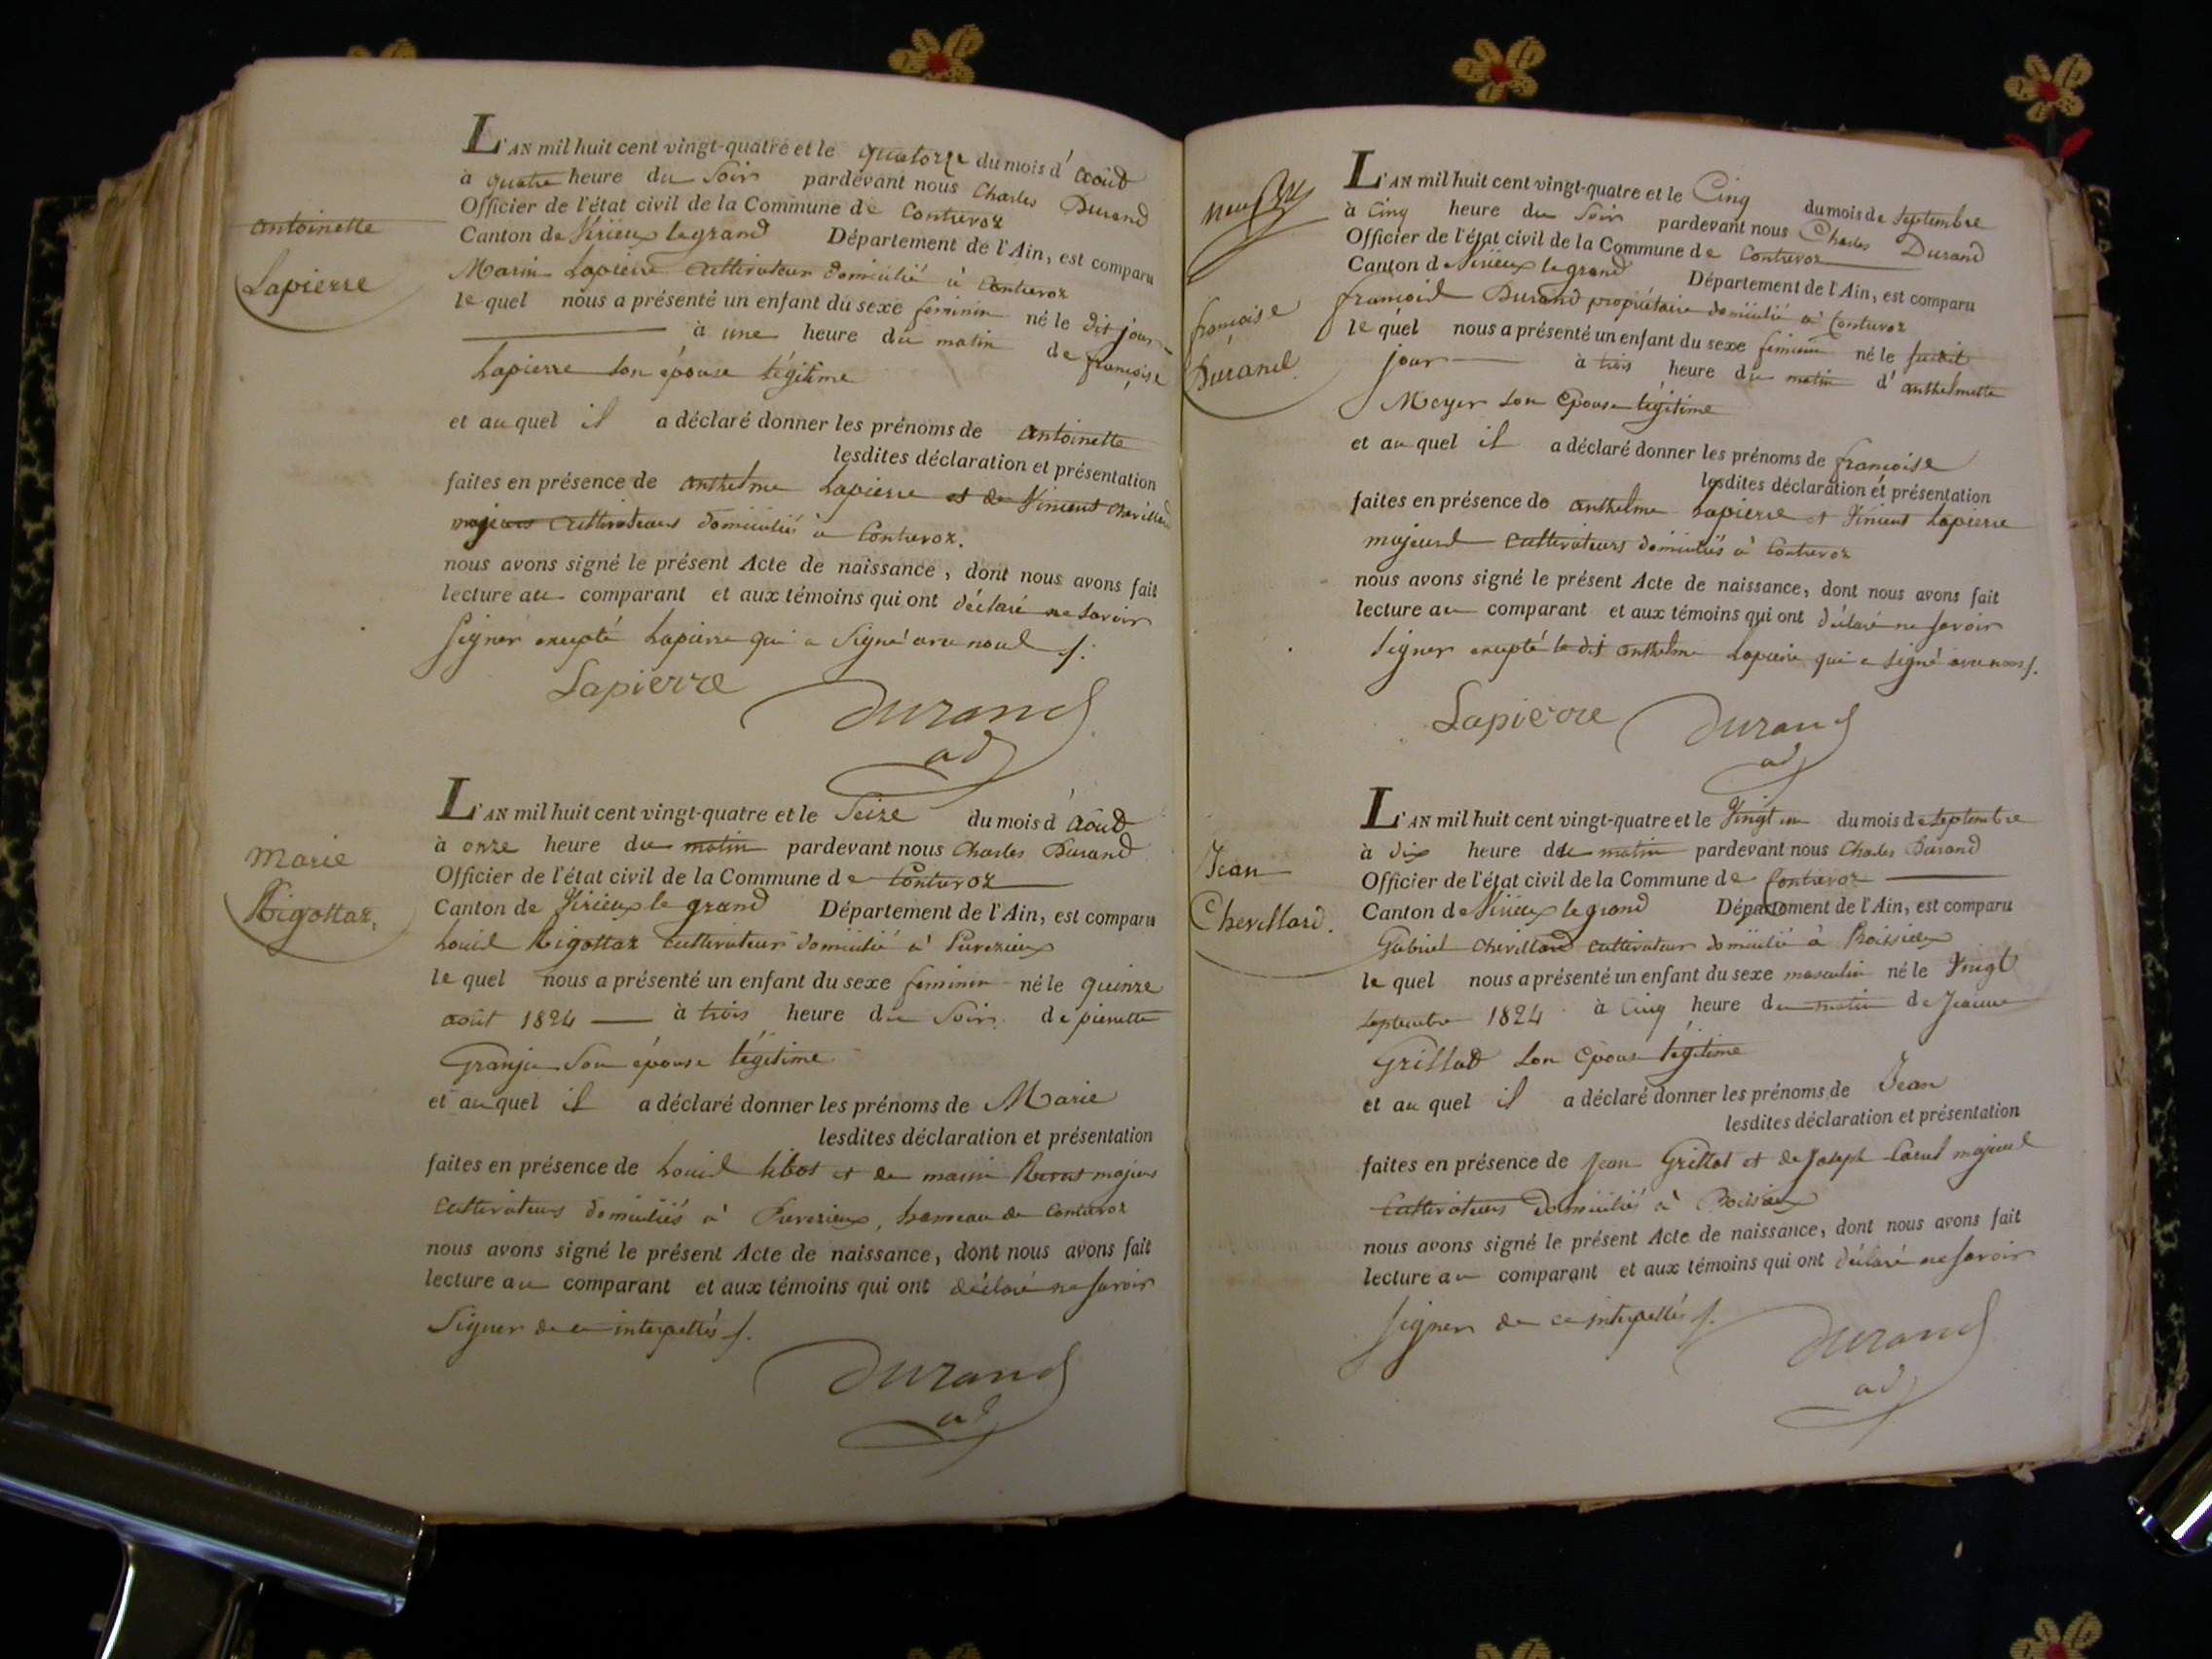 antoinette
Lapierre
L'AN mil huit cent vingt-quatre et le quatorze du mois d'août
à quatre heure du soir pardevant nous Charles Durand
Officier de l'état civil de la Commune de Contrevoz
Canton de Virieux le grand Département de l'Ain, est comparu
Marin Lapierre cultivateur domicilié à Contrevoz
le quel nous a présenté un enfant du sexe feminin né le dit jour
à une heure du matin de françoise
Lapierre son épouse légitime
et au quel il a déclaré donner les prénoms de antoinette
lesdites déclaration et présentation
faites en présence de anthelme Lapierre et de Vincent Chevillard
majeurs cultivateurs domiciliés à Contrevoz.
nous avons signé le présent Acte de naissance, dont nous avons fait
lecture au comparant et aux témoins qui ont déclaré ne savoir
signer excepté Lapierre qui a signé avec nous
Lapierre Durand
ad
Marie
Rigottaz,
L'AN mil huit cent vingt-quatre et le Seize du mois d'août
à onze heure du matin pardevant nous Charles Durand
Officier de l'état civil de la Commune de Contrevoz
Canton de Virieux le grand Département de l'Ain, est comparu
Louis Rigottaz cultivateur domicilié à Prevezieux
le quel nous a présenté un enfant du sexe feminin né le quinze
août 1824 à trois heure du soir de pierrette
son épouse légitime
et au quel il a déclaré donner les prénoms de Marie
lesdites déclaration et présentation
faites en présence de Louis et de marin majeurs
cultivateurs domiciliés à hameau de Contrevoz
nous avons signé le présent Acte de naissance, dont nous avons fait
lecture au comparant et aux témoins qui ont déclaré ne savoir
Signer de ce interpellés
Durand
ad
françoise
Durand.
L'AN mil huit cent vingt-quatre et le Cinq du mois de septembre
à Cinq heure du soir pardevant nous Charles Durand
Officier de l'état civil de la Commune de Contrevoz
Canton de Virieux le grand Département de l'Ain, est comparu
françois Durand propriétaire domicilié à Contrevoz
le quel nous a présenté un enfant du sexe feminin né le susdit
jour à trois heure du matin d'anthelmette
Meyer son épouse légitime
et au quel il a déclaré donner les prénoms de françoise
lesdites déclaration et présentation
faites en présence de anthelme Lapierre et Vincent Lapierre
majeurs cultivateurs domiciliés à Contrevoz
nous avons signé le présent Acte de naissance, dont nous avons fait
lecture au comparant et aux témoins qui ont déclaré ne savoir
signer excepté le dit anthelme Lapierre qui a signé avec nous
Lapierre Durand
ad
Jean
Chevillard.
L'AN mil huit cent vingt-quatre et le Vingt un du mois de septembre
à dix heure du matin pardevant nous Charles Durand
Officier de l'état civil de la Commune de Contrevoz
Canton de Virieux le grand Département de l'Ain, est comparu
Gabriel Chevillard cultivateur domicilié à Boissieux
le quel nous a présenté un enfant du sexe masculin né le Vingt
septembre 1824 à Cinq heure du matin de Jeanne
Grillod son épouse légitime
et au quel il a déclaré donner les prénoms de Jean
lesdites déclaration et présentation
faites en présence de Jean Grillot et de Joseph majeurs
cultivateurs domiciliés à Boissieux
nous avons signé le présent Acte de naissance, dont nous avons fait
lecture au comparant et aux témoins qui ont déclaré ne savoir
signer de ce interpellés
Durand
ad